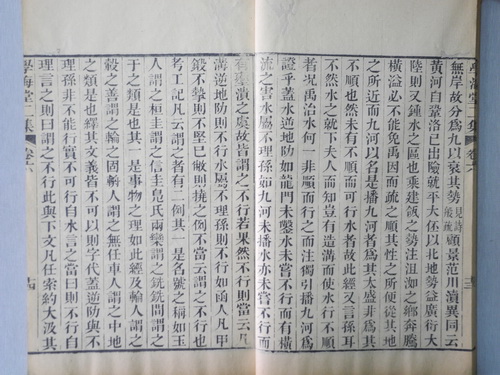 無岸故分爲九以衰其勢見詩般疏顧景范川瀆異同云
黃河自鞏洛已出險就平大伾以北地勢益廣衍大
陸則又鍾水之區也乘建瓴之勢注沮洳之鄉奔騰
橫溢必不能免禹因而疏之順其性之所便從其地
之所近而九河以名是播九河者爲其太盛非爲其
不順也然未有不順而可行水者故此經又言孫耳
然水之就下夫人而知豈有造溝而使水行不順
者况禹治水何一非順而行之注獨引播九河爲
證乎蓋水逆地防如龍門未鑿水未嘗不行而有橫
流之害水屬不理孫如九河未播水亦未嘗不行而
有壅潰之處故皆謂之不行若果然不行則當云凡
溝逆地防則不行水屬不理孫則不行如函人凡甲
鍛不摯則不堅已敝則撓之例不當云謂之不行也
考工記凡云謂之者有二例其一是名號之稱如玉
人謂之桓圭謂之信圭鳧氏兩欒謂之銑銑間謂之
于之類是也其一是事物之理如此經及輪人謂之
轂之善謂之輪之固輈人謂之無任車人謂之中地
之類是也繹其文義皆不可以則字代蓋逆防與不
理孫非不能行實不可行自水言之當曰則不行自
理言之則曰謂之不行此與下文凡任索約大汲其
學海堂二集
卷六
十三
學海堂二集
卷六
十四